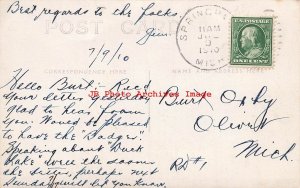 Best regards to the folks.
Jim.
POST CARD
7/9/10
SPRINGPORT
11 AM
JUL
9
1910
MICH.
U.S. POSTAGE
ONE CENT
CORRESPONDENCE HERE
NAME AND ADDRESS HERE
Hello Burt: Rec'd
your letter
glad to hear from
you. Would be pleased
to have the "Dodgers"
Speaking about "Duck
Lake" were the
the Sisters, perhaps next
Sunday, will let you know.
Burt
Olivet
Mich.
RD#1